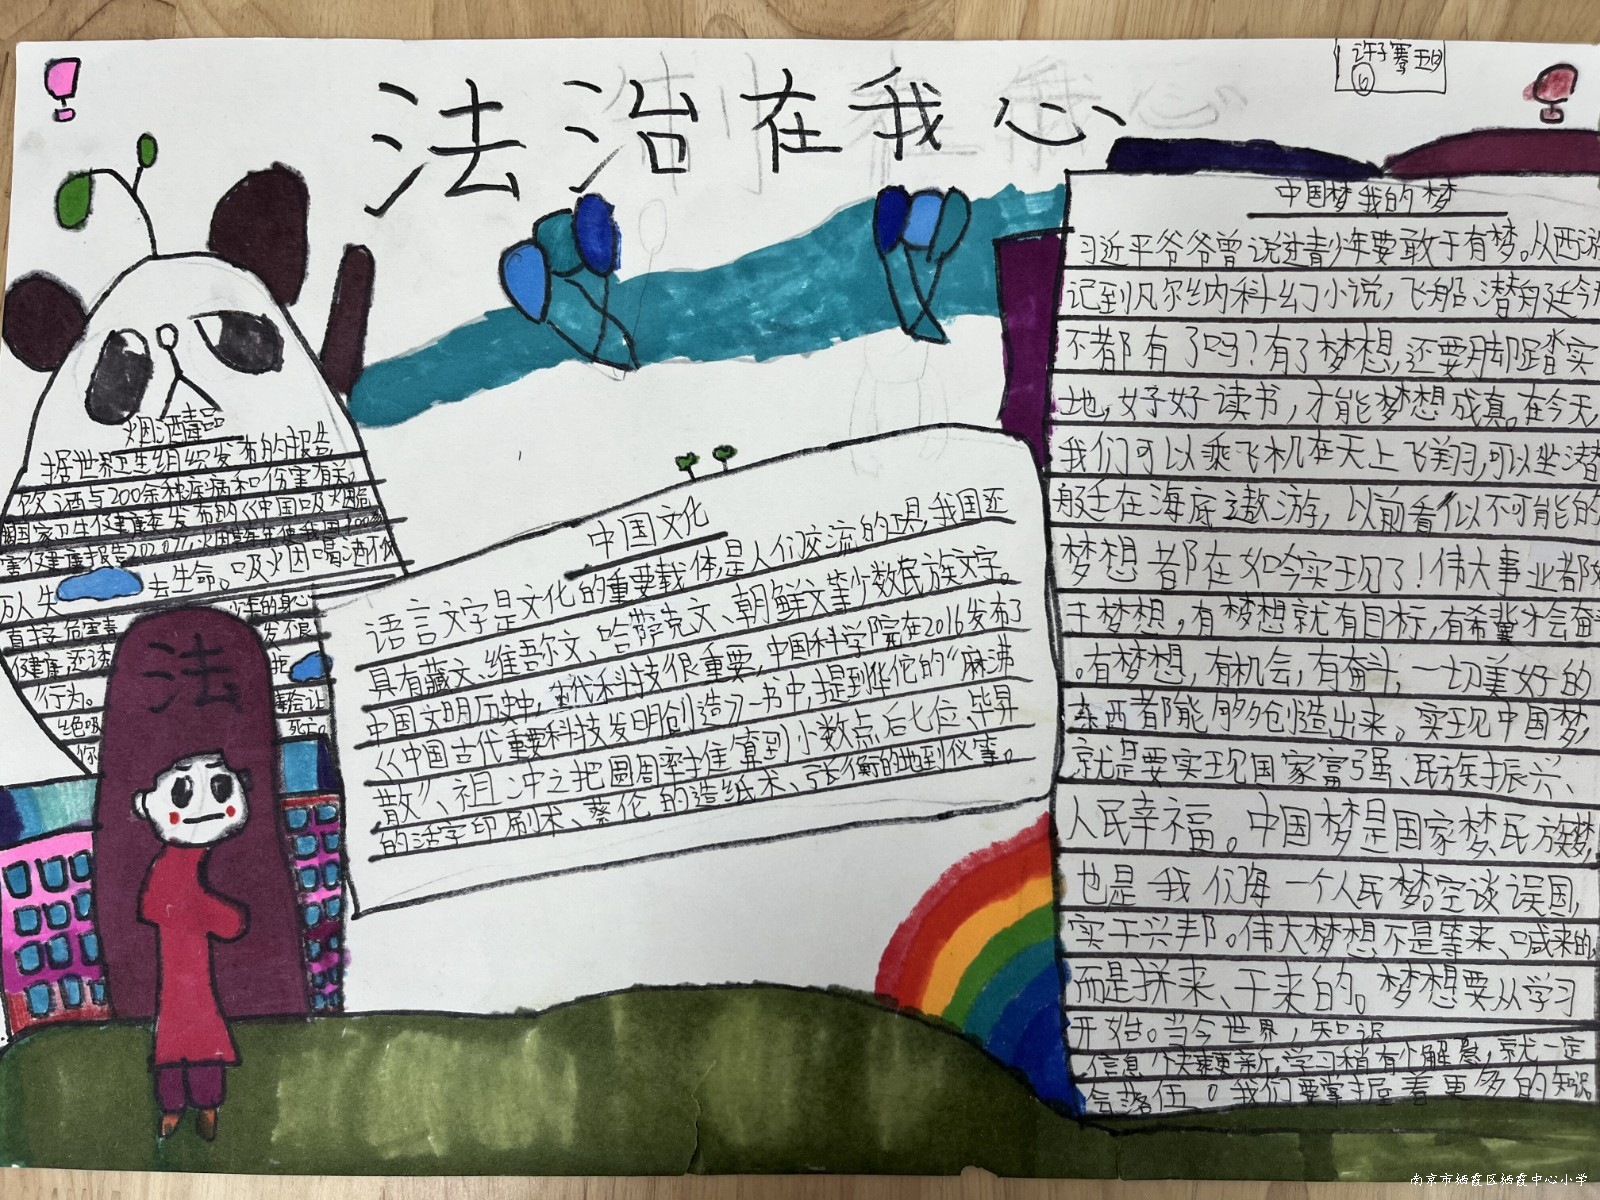 法治在我心
烟酒毒品
据世界卫生组织发布的报告,
饮酒与200余种疾病和伤害有关。
国家卫生健康委发布的《中国吸烟危
害健康报告2020》,
万人失
去生命。吸烟喝酒不仅
直接危害青
少年的身心
健康,还诱
发不良
行为。
拒
绝吸
死亡。
法
中国文化
语言文字是文化的重要载体,是人们交流的工具,我国还
具有藏文、维吾尔文、哈萨克文、朝鲜文等少数民族文字。
中国文明历史中,古代科技很重要,中国科学院在2016发布了
《中国古代重要科技发明创造》一书中,提到华佗的“麻沸
散”、祖冲之把圆周率推算到小数点后七位、毕昇
的活字印刷术、蔡伦的造纸术、张衡的地动仪等。
中国梦我的梦
习近平爷爷曾说过青少年要敢于有梦。从西游
记到凡尔纳科幻小说,飞船潜艇今
不都有了吗?有了梦想,还要脚踏实
地,好好读书,才能梦想成真。在今天,
我们可以乘飞机在天上飞翔,可以坐潜
艇在海底遨游,以前看似不可能的
梦想都在如今实现了!伟大事业都始
于梦想,有梦想就有目标,有希冀才会奋斗
。有梦想,有机会,有奋斗,一切美好的
东西都能够创造出来。实现中国梦,
就是要实现国家富强、民族振兴、
人民幸福。中国梦是国家梦、民族梦,
也是我们每一个人民梦。空谈误国,
实干兴邦。伟大梦想不是等来、喊来的,
而是拼来、干来的。梦想要从学习
开始。当今世界,知识
信息快速更新,学习稍有懈怠,就一定
会落伍。我们要掌握着更多的知识
南京市栖霞区栖霞中心小学